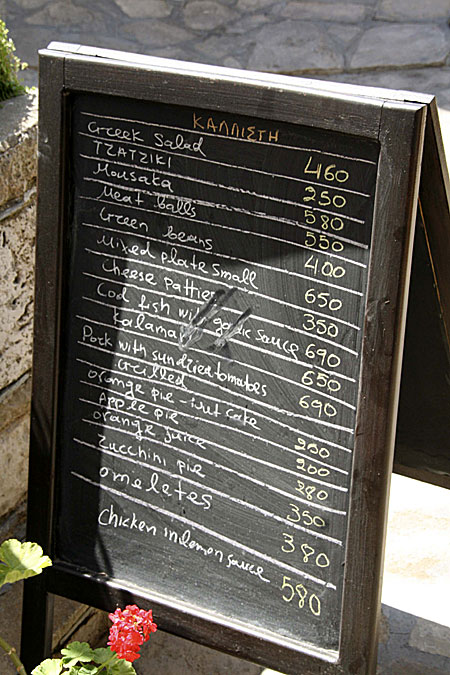 ΚΑΛΛΙΣΤΗ
Greek Salad 460
TZATZIKI 250
Mousaka 580
Meat balls 550
Green beans 400
Mixed plate small 650
Cheese patties 350
Cod fish with garlic sauce 690
kalamari 650
Pork with sundried tomatoes 690
Grilled
orange pie - nut cake 250
Apple pie 200
orange juice 280
zucchini pie 350
omeletes 380
chicken in lemon sauce 580